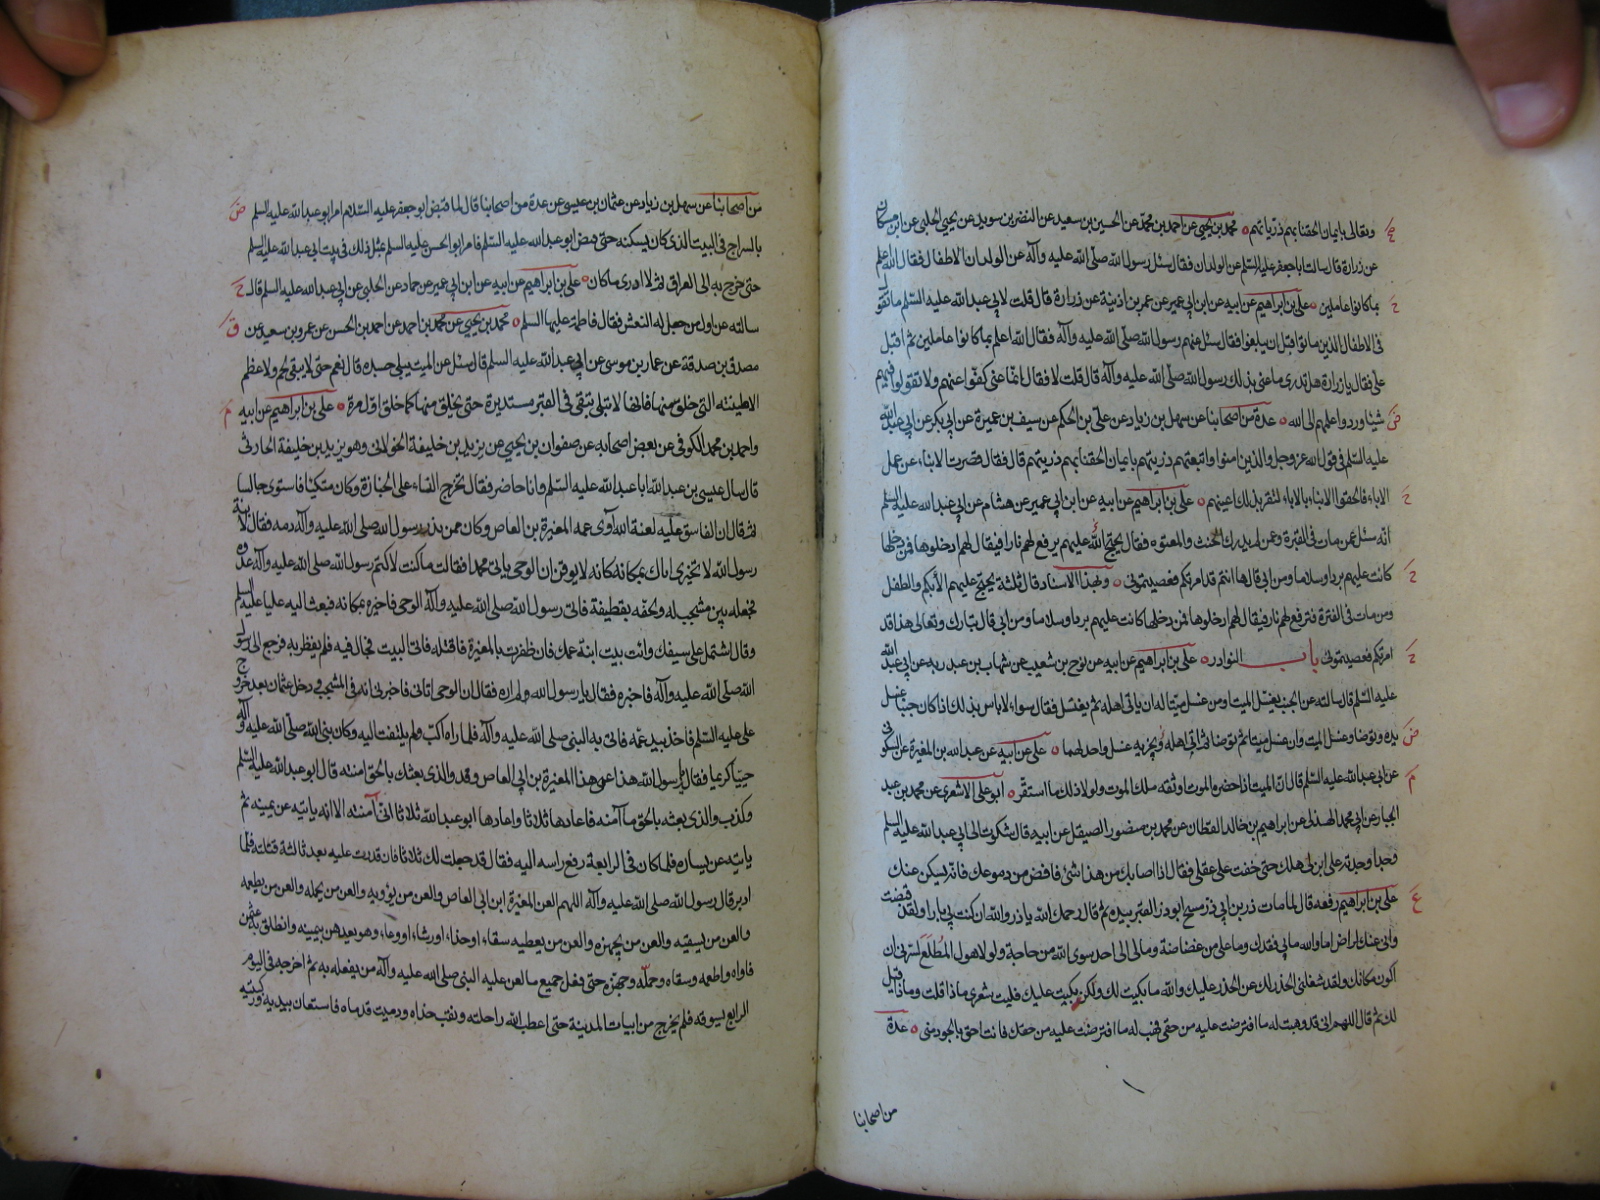 وتعالى بايمان الحقنا بهم ذرياتهم محمد بن يحيى عن احمد بن محمد عن الحسين بن سعيد عن النضر بن سويد عن يحيى الحلبي عن ابن مسكان
عن زرارة قال سالت ابا جعفر عليه السلم عن الولدان فقال سئل رسول الله صلى الله عليه وآله عن الولدان الاطفال فقال الله اعلم
بما كانوا عاملين علي بن ابراهيم عن ابيه عن ابن ابي عمير عن عمر بن اذينة عن زرارة قال قلت لابي عبد الله عليه السلم ما تقول
في الاطفال الذين ماتوا قبل ان يبلغوا فقال سئل عنهم رسول الله صلى الله عليه وآله فقال الله اعلم بما كانوا عاملين ثم اقبل
علي فقال يا زرارة هل تدري ما عنى بذلك رسول الله صلى الله عليه وآله قال قلت لا فقال انما عنى كفوا عنهم ولا تقولوا فيهم
شيئا وردوا علمهم الى الله عدة من اصحابنا عن سهل بن زياد عن علي بن الحكم عن سيف بن عميرة عن ابي بكر عن ابي عبد الله
عليه السلم في قول الله عز وجل والذين امنوا واتبعتهم ذريتهم بايمان الحقنا بهم ذريتهم قال فقال قصرت الابناء عن عمل
الاباء فالحقوا الابناء بالاباء لتقر بذلك اعينهم علي بن ابراهيم عن ابيه عن ابن ابي عمير عن هشام عن ابي عبد الله عليه السلم
انه سئل عمن مات في الفترة وعمن لم يدرك الحنث والمعتوه فقال يحتج الله عليهم يرفع لهم نارا فيقال لهم ادخلوها فمن دخلها
كانت عليه بردا وسلاما ومن ابى قال ها انتم قد امرتكم فعصيتموني وبهذا الاسناد قال ثلثة يحتج عليهم الأبكم والطفل
ومن مات في الفترة فترفع لهم نار فيقال لهم ادخلوها فمن دخلها كانت عليهم بردا وسلاما ومن ابى قال تبارك وتعالى هذا قد
امرتكم فعصيتموني باب النوادر علي بن ابراهيم عن ابيه عن نوح بن شعيب عن شهاب بن عبد ربه عن ابي عبد الله
عليه السلم قال سالته عن الجنب يغتسل الميت او من غسل ميتا له ان ياتي اهله ثم يغتسل فقال سواء لا باس بذلك اذا كان جنبا غسل
يده وتوضا وغسل الميت وان غسل ميتا ثم توضا ثم اتى اهله ويجزيه غسل واحد لهما علي عن ابيه عن عبد الله بن المغيرة عن السكوني
عن ابي عبد الله عليه السلم قال ان الميت اذا حضره الموت اوثقه ملك الموت ولولا ذلك ما استقر ابو علي الاشعري عن محمد بن عبد
الجبار عن ابي محمد الهذلي عن ابراهيم بن خالد القطان عن محمد بن منصور الصيقل عن ابيه قال شكوت الى ابي عبد الله عليه السلم
وجدا وجدته على ابن لي هلك حتى خفت على عقلي فقال اذا اصابك من هذا شئ فافض من دموعك فانه يسكن عنك
علي بن ابراهيم رفعه قال لما مات ذر بن ابي ذر مسح ابو ذر القبر بيده ثم قال رحمك الله يا ذر والله ان كنت بي بارا ولقد قبضت
واني عنك لراض اما والله ما بي فقدك وما علي من غضاضة وما لي الى احد سوى الله من حاجة ولولا هول المطلع لسرني ان
اكون مكانك ولقد شغلني الحذر لك عن الحذر عليك والله ما بكيت لك ولكن بكيت عليك فليت شعري ماذا قلت وماذا قيل
لك ثم قال اللهم اني قد وهبت له ما افترضت عليه من حقي فهب له ما افترضت عليه من حقك فانت احق بالجود مني عدة
من اصحابنا
من اصحابنا عن سهل بن زياد عن عثمان بن عيسى عن عدة من اصحابنا قال لما قبض ابو جعفر عليه السلام امر ابو عبد الله عليه السلم
بالسراج في البيت الذي كان يسكنه حتى قبض ابو عبد الله عليه السلم فامر ابو الحسن عليه السلم بمثل ذلك في بيت ابي عبد الله عليه السلم
حتى خرج به الى العراق ثم لا ادري ما كان علي بن ابراهيم عن ابيه عن ابن ابي عمير عن حماد عن الحلبي عن ابي عبد الله عليه السلم قال
سالته عن اول من جعل له النعش فقال فاطمة عليها السلم محمد بن يحيى عن محمد بن احمد عن احمد بن الحسن عن عمرو بن سعيد عن
مصدق بن صدقة عن عمار بن موسى عن ابي عبد الله عليه السلم قال سئل عن الميت يبلى جسده قال نعم حتى لا يبقى لحم ولا عظم
الا طينته التي خلق منها فانها لا تبلى تبقى في القبر مستديرة حتى يخلق منها كما خلق اول مرة علي بن ابراهيم عن ابيه
واحمد بن محمد الكوفي عن بعض اصحابه عن صفوان بن يحيى عن يزيد بن خليفة الخولاني وهو يزيد بن خليفة الحارثي
قال سال عيسى بن عبد الله ابا عبد الله عليه السلم وانا حاضر فقال تخرج النساء على الجنازة وكان متكيا فاستوى جالسا
ثم قال ان الفاسق عليه لعنة الله آوى عمه المغيرة بن العاص وكان ممن نذر رسول الله صلى الله عليه وآله دمه فقال لابنة
رسول الله لا تخبري اباك بمكانه كانه لا يوقن ان الوحي ياتي محمدا فقالت ما كنت لاكتم رسول الله صلى الله عليه وآله عدوه
فجعله بين مشجب له ولحفه بقطيفة فاتى رسول الله صلى الله عليه وآله الوحي فاخبره بمكانه فبعث اليه عليا عليه السلم
وقال اشتمل على سيفك وائت بيت ابنة عمك فان ظفرت بالمغيرة فاقتله فاتى البيت فجال فيه فلم يظفر به فرجع الى رسول
الله صلى الله عليه وآله فاخبره فقال يا رسول الله ولم اره فقال ان الوحي اتاني فاخبرني انه في المشجب ودخل عثمان بعد خروج
علي عليه السلم فاخذ بيد عمه فاتى به النبي صلى الله عليه وآله فلما راه اكب ولم يلتفت اليه وكان نبي الله صلى الله عليه وآله
حييا كريما فقال يا رسول الله هذا عمي هذا المغيرة بن ابي العاص وقد والذي بعثك بالحق امنته قال ابو عبد الله عليه السلم
وكذب والذي بعثه بالحق ما آمنه فاعادها ثلاثا واعادها ابو عبد الله ثلاثا انى آمنته الا انه ياتيه عن يمينه ثم
ياتيه عن يساره فلما كان في الرابعة رفع راسه اليه فقال قد جعلت لك ثلاثا فان قدرت عليه بعد ثالثة قتلته فلما
ادبر قال رسول الله صلى الله عليه وآله اللهم العن المغيرة ابن ابي العاص والعن من يؤويه والعن من يحمله والعن من يطعمه
والعن من يسقيه والعن من يجهزه والعن من يعطيه سقاء او حذاء او رشاء او وعاء وهو يعدهن بيمينه وانطلق به عثمن
فاواه واطعمه وسقاه وحمله وجهزه حتى وفعل جميع ما لعن عليه النبي صلى الله عليه وآله من يفعله به ثم اخرجه في اليوم
الرابع يسوقه فلم يخرج من ابيات المدينة حتى اعطب الله راحلته ونقب حذاه ودميت قدماه فاستعان بيديه وركبتيه